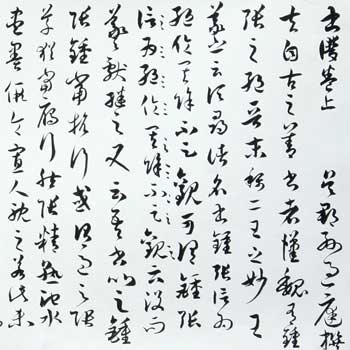 書譜卷上 吳郡孫過庭撰
夫自古之善書者漢魏有鍾
張之絕晉末稱二王之妙王
羲之云頃尋諸名書鍾張信為
絕倫其餘不足觀可謂鍾張
信為絕倫其餘不足觀云沒而
羲獻繼之又云吾書比之鍾
張鍾當抗行或謂過之張
草猶當鴈行然張精熟池水
盡墨假令寡人耽之若此未